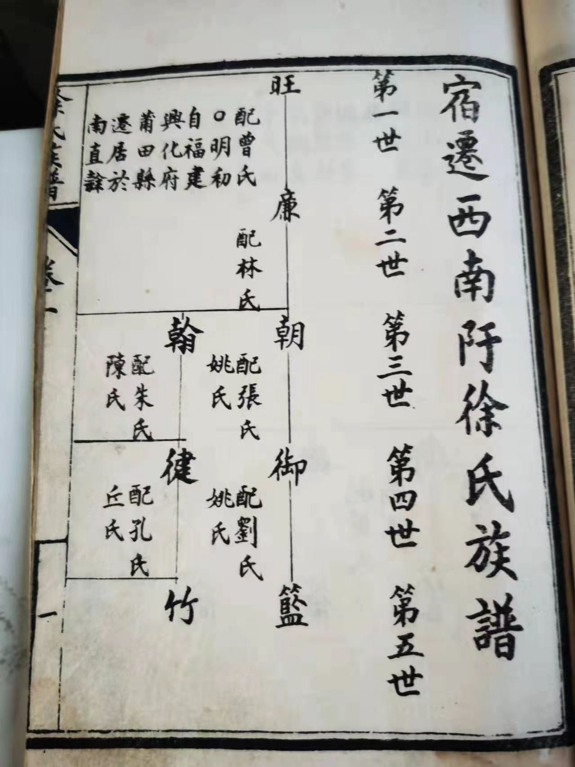 宿遷西南阡徐氏族譜
第一世
第二世
第三世
第四世
第五世
旺
配曾氏
○明初
自福建
興化府
莆田縣
遷居於
南直隸
廉
配林氏
朝
配張氏
姚氏
御
配劉氏
姚氏
籃
翰
配朱氏
陳氏
健
配孔氏
丘氏
竹
氏族譜
卷一
一